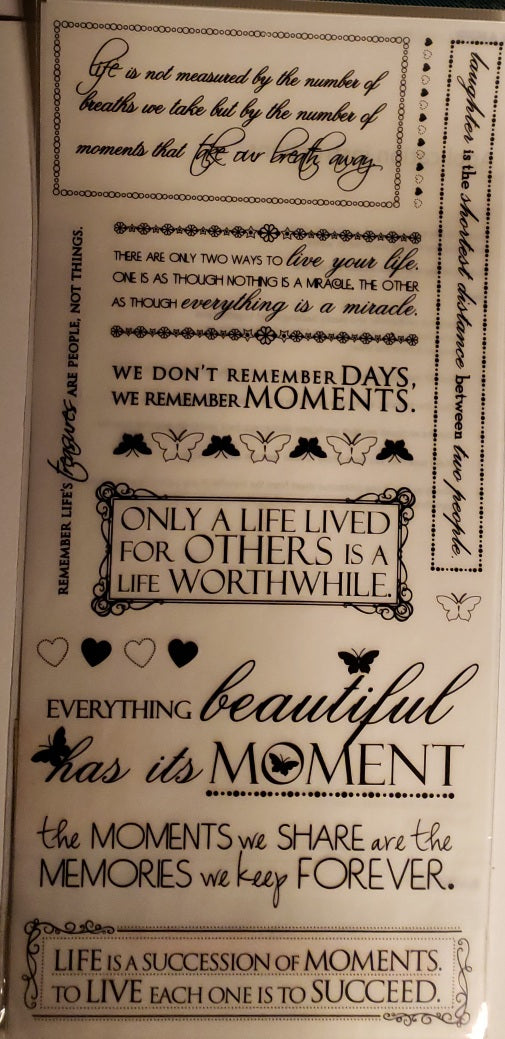 life is not measured by the number of
breaths we take but by the number of
moments that take our breath away
laughter is the shortest distance between two people.
THERE ARE ONLY TWO WAYS TO live your life.
ONE IS AS THOUGH NOTHING IS A MIRACLE, THE OTHER
AS THOUGH everything is a miracle.
REMEMBER LIFE'S treasures ARE PEOPLE, NOT THINGS.
WE DON'T REMEMBER DAYS,
WE REMEMBER MOMENTS.
ONLY A LIFE LIVED
FOR OTHERS IS A
LIFE WORTHWHILE.
EVERYTHING beautiful
has its MOMENT
the MOMENTS we SHARE are the
MEMORIES we keep FOREVER.
LIFE IS A SUCCESSION OF MOMENTS.
TO LIVE EACH ONE IS TO SUCCEED.